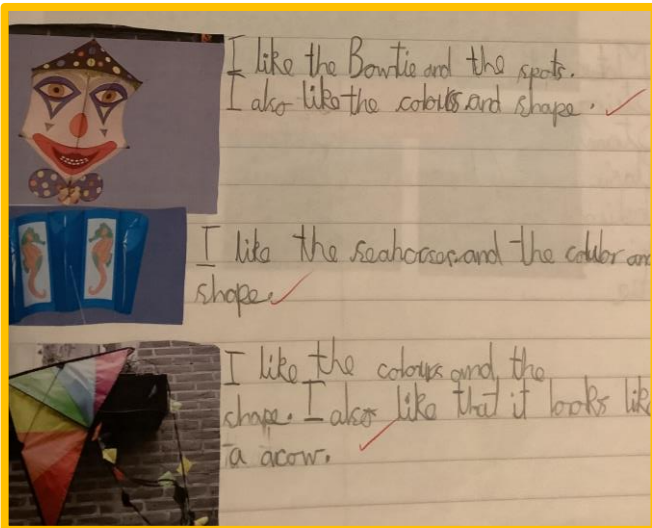 I like the Bowtie and the spots.
I also like the colours and shape.
I like the seahorses and the colour an
shape.
I like the colours and the
shape. I also like that it looks lik
a acow.